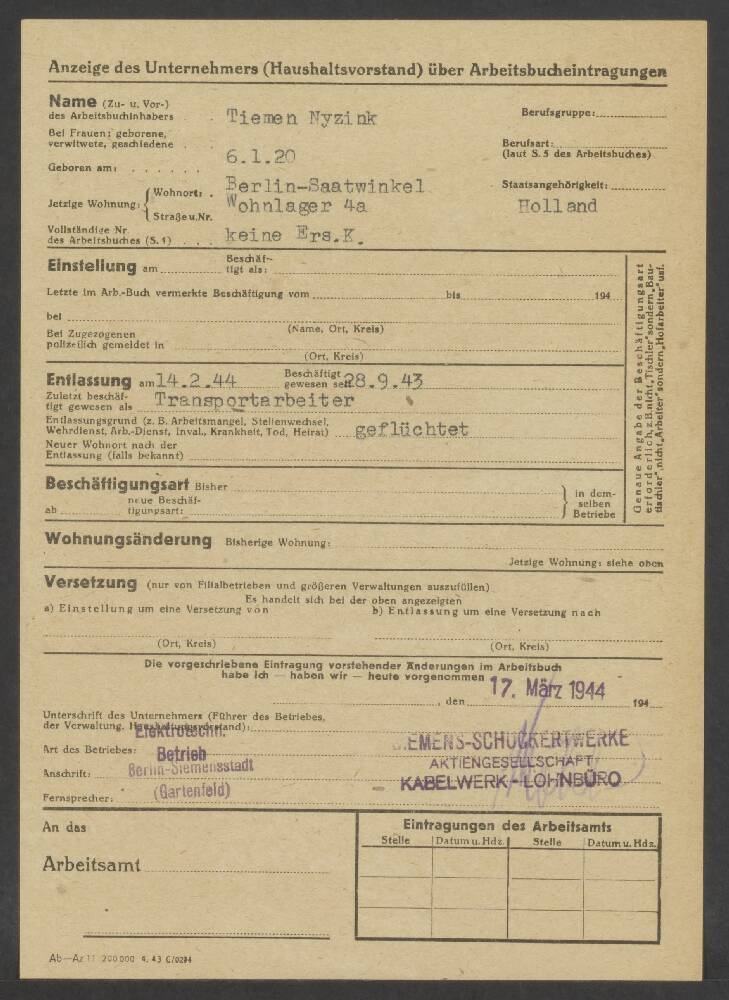 Anzeige des Unternehmers (Haushaltsvorstand) über Arbeitsbucheintragungen
Name (Zu- u. Vor-)
des Arbeitsbuchinhabers Tiemen Nyzink Berufsgruppe:
Bei Frauen: geborene,
verwitwete, geschiedene Berufsart:
(laut S. 5 des Arbeitsbuches)
Geboren am: 6.1.20
Jetzige Wohnung: Wohnort: Berlin-Saatwinkel Staatsangehörigkeit:
Straße u. Nr. Wohnlager 4a Holland
Vollständige Nr.
des Arbeitsbuches (S. 1) keine Ers.K.
Einstellung am Beschäf-
tigt als:
Letzte im Arb.-Buch vermerkte Beschäftigung vom bis 194
bei
(Name, Ort, Kreis)
Bei Zugezogenen
polizeilich gemeldet in
(Ort, Kreis)
Entlassung am 14.2.44 Beschäftigt
gewesen seit 28.9.43
Zuletzt beschäf-
tigt gewesen als Transportarbeiter
Entlassungsgrund (z. B. Arbeitsmangel, Stellenwechsel,
Wehrdienst, Arb.-Dienst, Inval., Krankheit, Tod, Heirat) geflüchtet
Neuer Wohnort nach der
Entlassung (falls bekannt)
Genaue Angabe der Beschäftigungsart
erforderlich, z.B. nicht „Tischler" sondern „Bau-
tischler", nicht „Arbeiter" sondern „Hofarbeiter" usf.
Beschäftigungsart Bisher
ab neue Beschäf-
tigungsart:
in dem-
selben
Betriebe
Wohnungsänderung Bisherige Wohnung:
Jetzige Wohnung: siehe oben
Versetzung (nur von Filialbetrieben und größeren Verwaltungen auszufüllen)
Es handelt sich bei der oben angezeigten
a) Einstellung um eine Versetzung von b) Entlassung um eine Versetzung nach
(Ort, Kreis) (Ort, Kreis)
Die vorgeschriebene Eintragung vorstehender Änderungen im Arbeitsbuch
habe ich — haben wir — heute vorgenommen
, den 17. März 1944 194
Unterschrift des Unternehmers (Führer des Betriebes,
der Verwaltung, Haushaltungsvorstand):
Elektrotechn.
SIEMENS-SCHUCKERTWERKE
Art des Betriebes: Betrieb
AKTIENGESELLSCHAFT
Anschrift: Berlin-Siemensstadt
KABELWERK - LOHNBÜRO
(Gartenfeld)
Fernsprecher:
An das
Arbeitsamt
Eintragungen des Arbeitsamts
Stelle Datum u. Hdz. Stelle Datum u. Hdz.
Ab—Az 11 200000 4. 43 C/0294